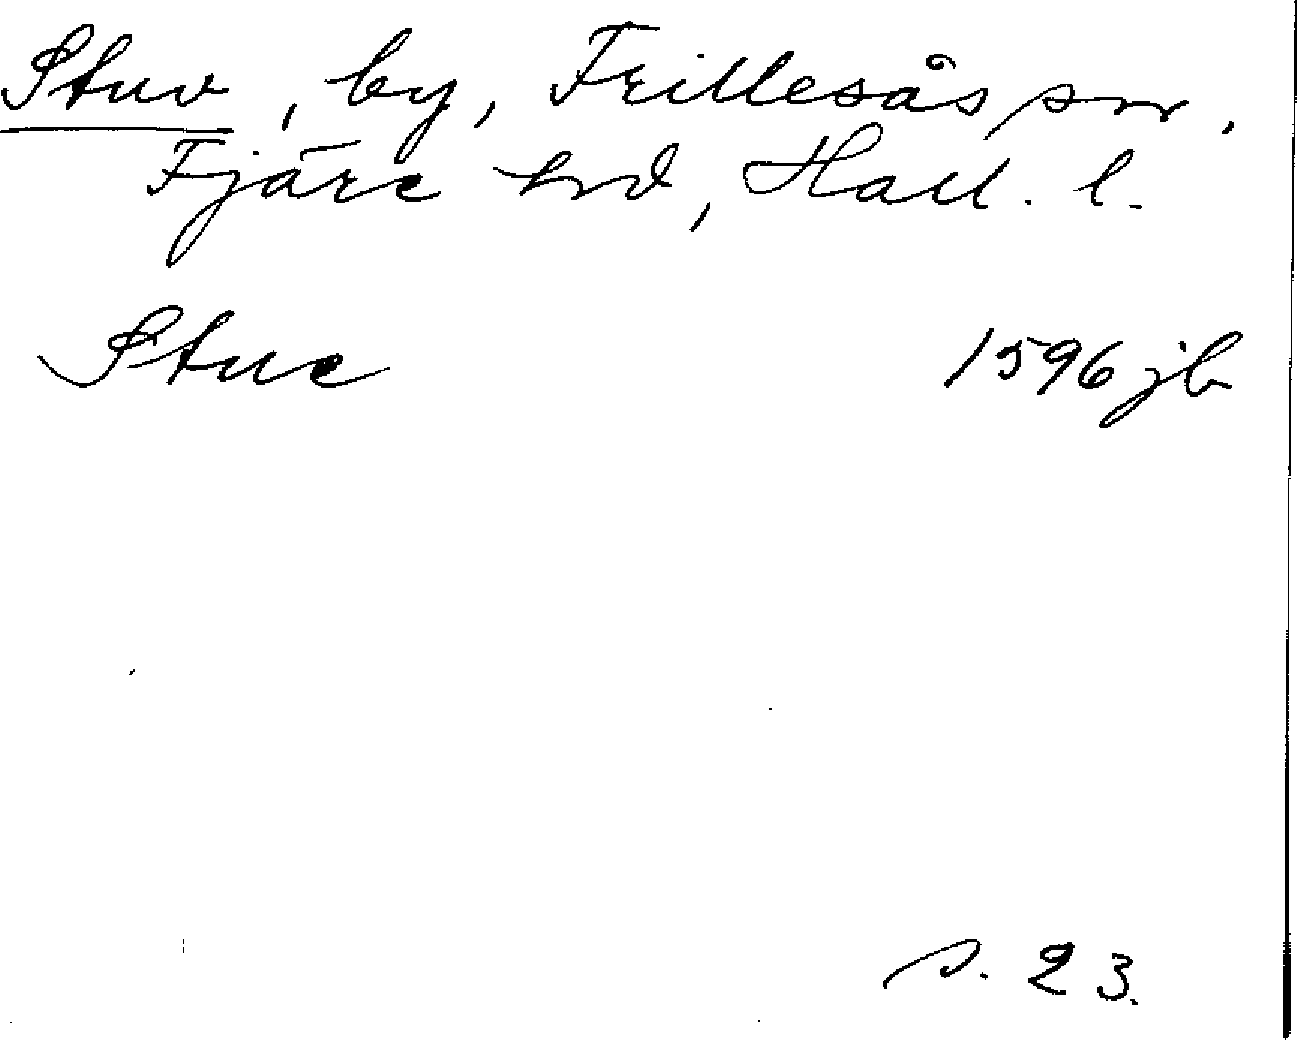 Stuv, by, Frillesås sn,
Fjäre hd, Hall. l.
Stue 1596 jb
s. 23.